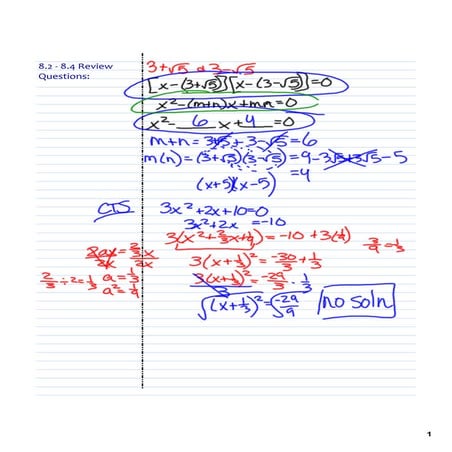 8.2 - 8.4 Review
Questions:
3+√5 & 3-√5
[x-(3+√5)][x-(3-√5)]=0
x²-(m+n)x+mn=0
x²- 6 x + 4 =0
m+n = 3+√5 + 3-√5 = 6
m(n) = (3+√5)(3-√5) = 9-3√5+3√5-5
=4
(x+5)(x-5)
CTS
3x²+2x+10=0
3x²+2x =-10
3(x²+2/3x+1/9) = -10+3(1/9)
3/9=1/3
2ax = 2/3x
2x 2x
3(x+1/3)² = -30/3+1/3
2/3÷2=1/3
a=1/3
a²=1/9
3(x+1/3)² = -29/3 · 1/3
3
√(x+1/3)² = √-29/9
no soln
1